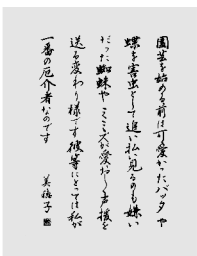 園芸を始める前は可愛かったバッタや
蝶を害虫として追い払い見るのも嫌い
だった蜘蛛やミミズが愛おしく声援を
送る変わり様です彼等にとっては私が
一番の厄介者なのです
美穂子